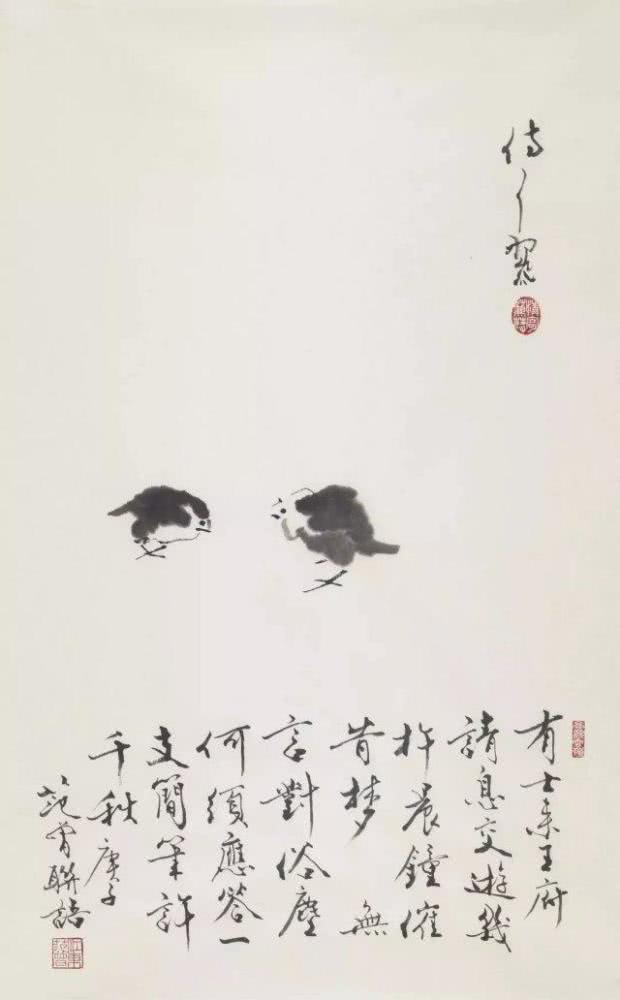 有士來王府
請息交遊幾
杵晨鐘催
昔梦 無
言對俗塵
何須應答一
支簡筆許
千秋 庚子
范曾聯語